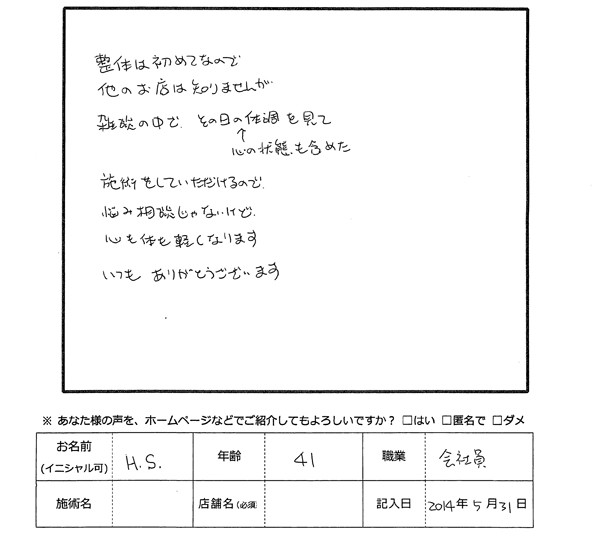 整体は初めてなので
他のお店は知りませんが
雑談の中で、その日の体調を見て
↑
心の状態も含めた
施術をしていただけるので、
悩み相談じゃないけど、
心も体も軽くなります
いつも ありがとうございます
※ あなた様の声を、ホームページなどでご紹介してもよろしいですか？ □はい □匿名で □ダメ
お名前 (イニシャル可) H.S. 年齢 41 職業 会社員
施術名 店舗名(必須) 記入日 2014年5月31日